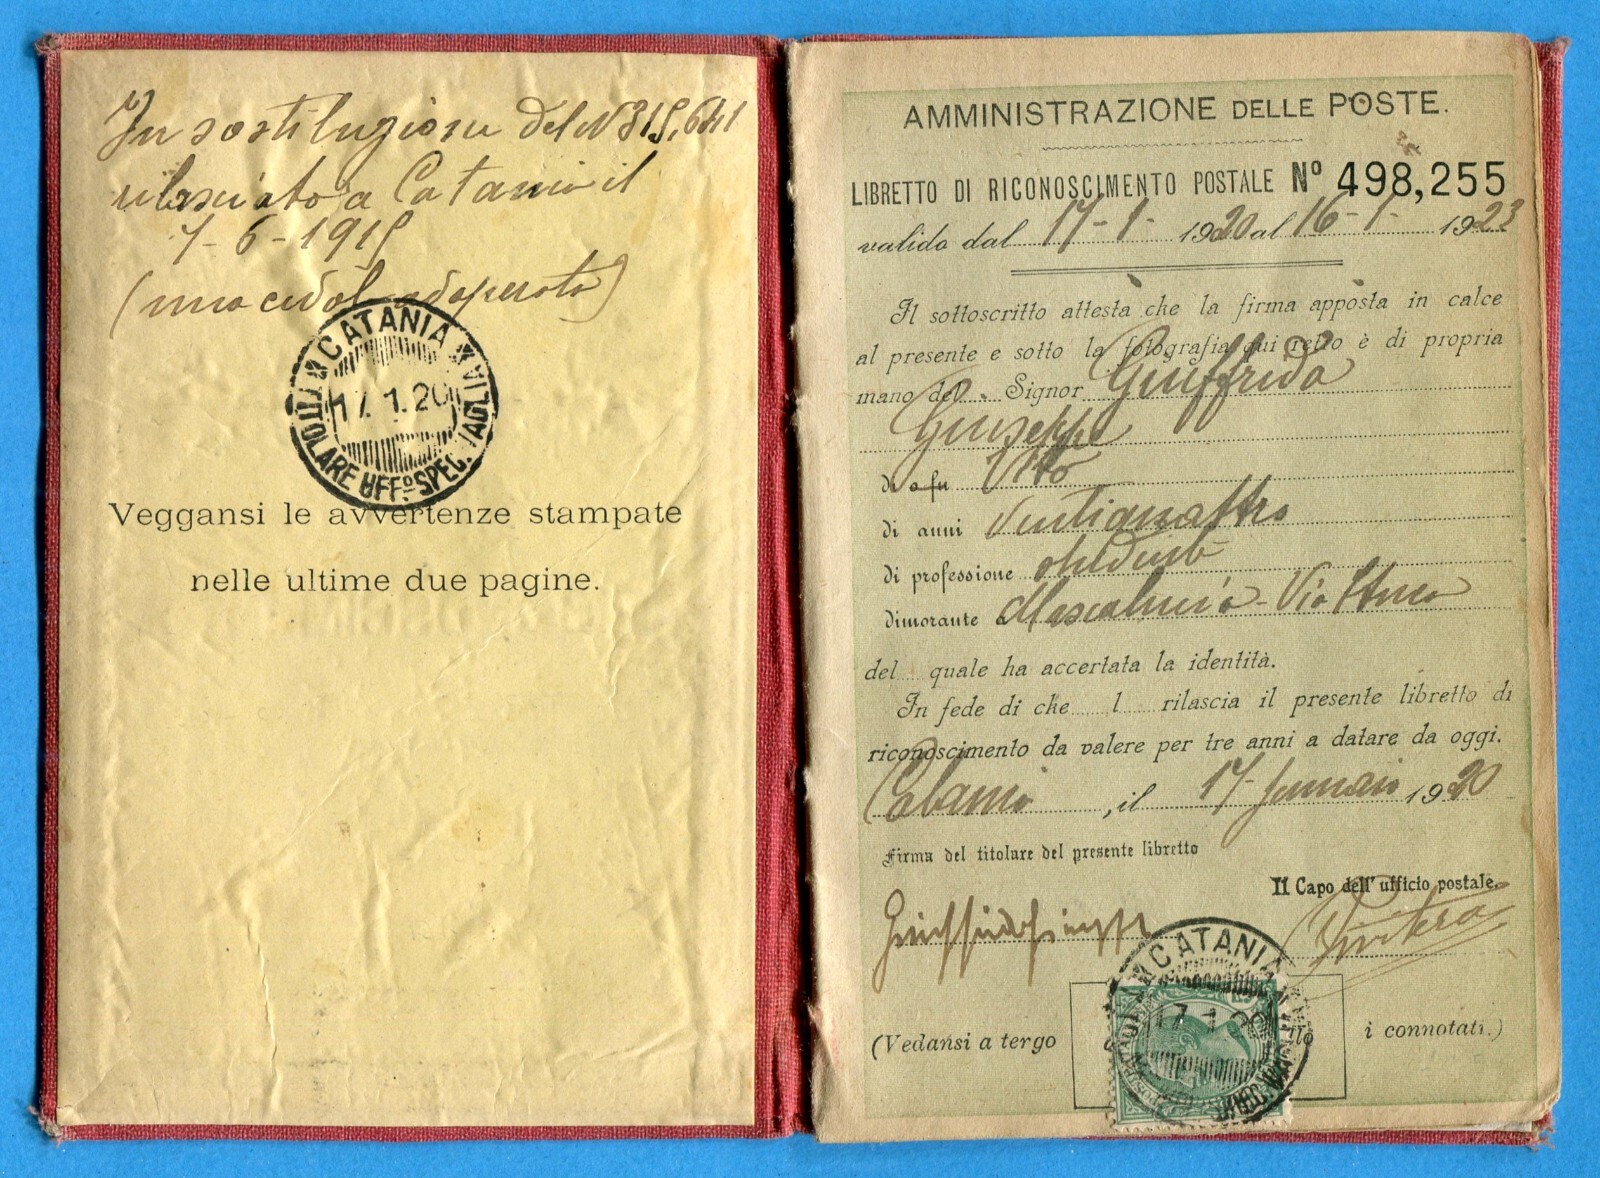 In sostituzione del N 315,641
rilasciato a Catania il
7-6-1915
(una cedola adoperata)
CATANIA
17.1.20
VAGLIA TITOLI
UFFº SPEC.
Veggansi le avvertenze stampate
nelle ultime due pagine.
AMMINISTRAZIONE DELLE POSTE.
LIBRETTO DI RICONOSCIMENTO POSTALE Nº 498,255
valido dal 17-1-1920 al 16-1-1923
Il sottoscritto attesta che la firma apposta in calce
al presente e sotto la fotografia qui retro è di propria
mano del Signor Giuffrida
Giuseppe
di o fu Vito
di anni Ventiquattro
di professione studente
dimorante Mascalucia - Via Etnea
del quale ha accertata la identità.
In fede di che l rilascia il presente libretto di
riconoscimento da valere per tre anni a datare da oggi.
Catania, il 17 Gennaio 1920
Firma del titolare del presente libretto
Il Capo dell' ufficio postale.
Giuffrida Giuseppe
CATANIA
17 1 20
(Vedansi a tergo i connotati.)